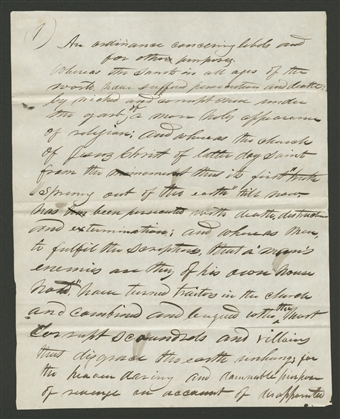 1)
An ordinance concerning libels and
for other purposes.
Whereas the saints in all ages of the
world, have suffered persecution and death,
by wicked and corrupt men under
the garb of a more holy appearance
of religion; And whereas the church
of Jesus Christ of latter day Saints
from the moment that its first "truth
sprang out of the earth" till now
has been persecuted with death, destruction
and extermination; and whereas men,
to fulfil the scriptures, that a "man's
enemies are they of his own house
hold" have turned traitors in the church
and combined and leagued with the most
corrupt scoundrels and villains
that disgrace the earth unhung for
the heaven daring and damnable purpose
of revenge on account of disappointed